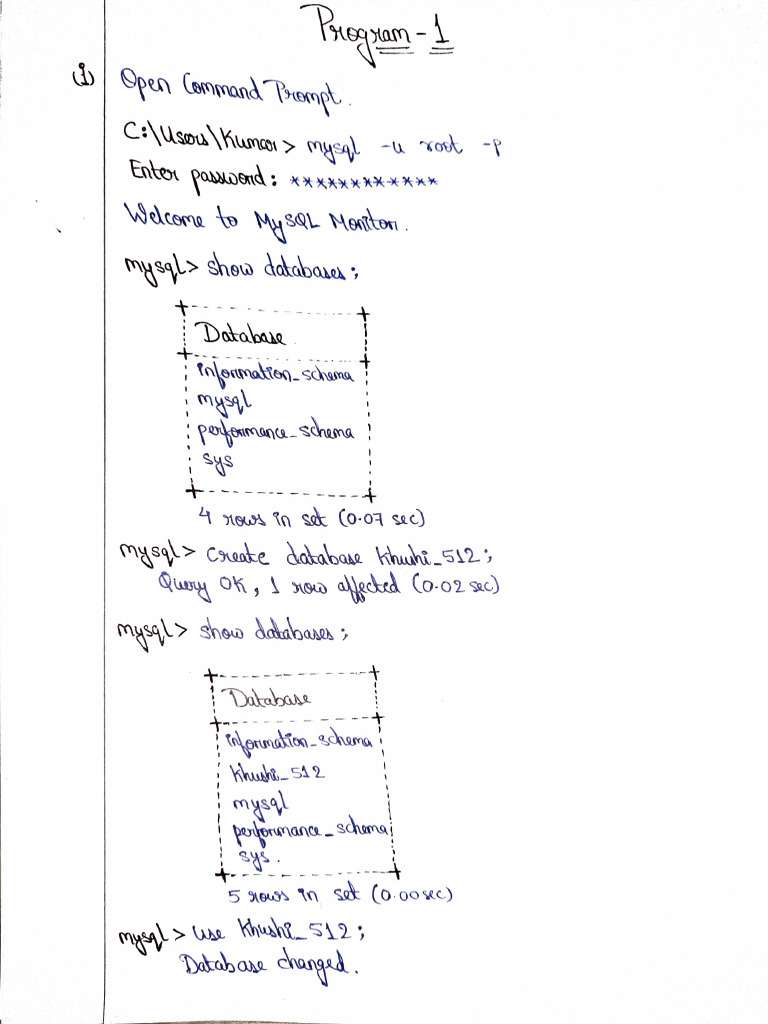 Program-1
(1) Open Command Prompt.
C:\Users\Kumar> mysql -u root -p
Enter password: ************
Welcome to MySQL Monitor.
mysql> show databases;
Database
information_schema
mysql
performance_schema
sys
4 rows in set (0.07 sec)
mysql> create database Khushi_512;
Query OK, 1 row affected (0.02 sec)
mysql> show databases;
Database
information_schema
Khushi_512
mysql
performance_schema
sys.
5 rows in set (0.00 sec)
mysql> use Khushi_512;
Database changed.